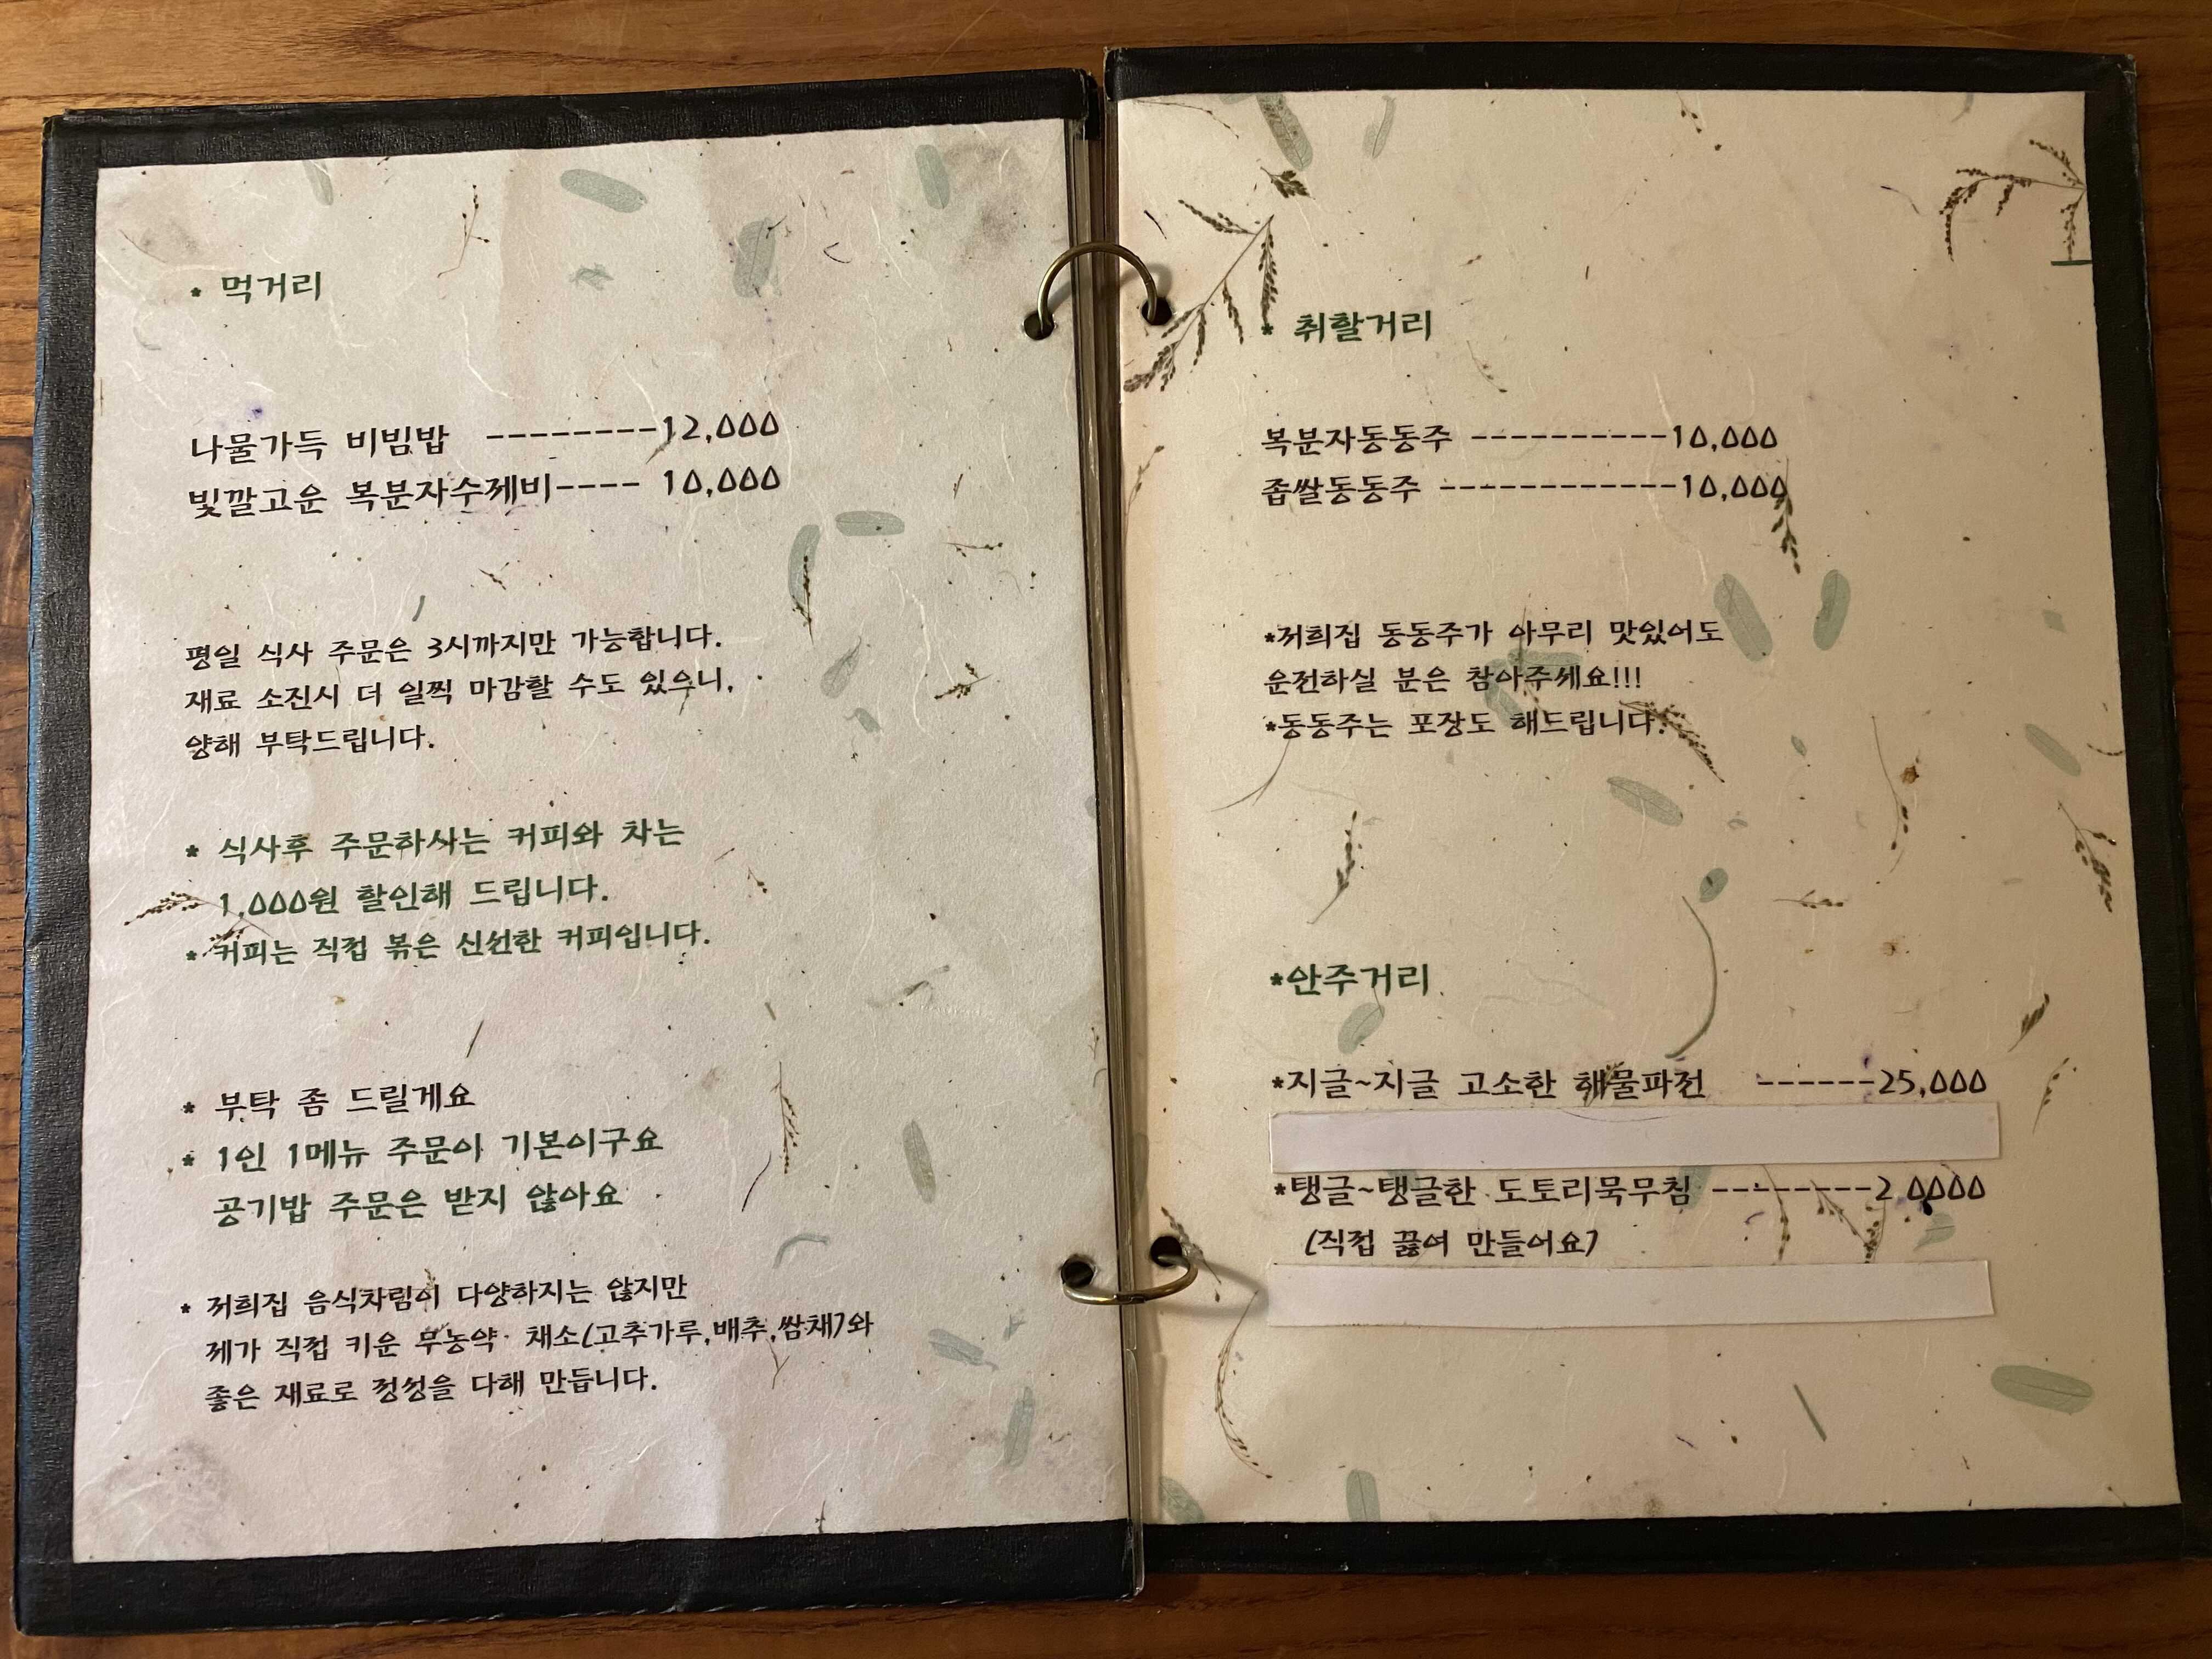 * 먹거리
나물가득 비빔밥 --------12,000
빛깔고운 복분자수제비---- 10,000
평일 식사 주문은 3시까지만 가능합니다.
재료 소진시 더 일찍 마감할 수도 있으니,
양해 부탁드립니다.
* 식사후 주문하시는 커피와 차는
1,000원 할인해 드립니다.
* 커피는 직접 볶은 신선한 커피입니다.
* 부탁 좀 드릴게요
* 1인 1메뉴 주문이 기본이구요
공기밥 주문은 받지 않아요
* 저희집 음식차림이 다양하지는 않지만
제가 직접 키운 무농약 채소(고추가루,배추,쌈채)와
좋은 재료로 정성을 다해 만듭니다.
* 취할거리
복분자동동주 ----------10,000
좁쌀동동주 ------------10,000
*저희집 동동주가 아무리 맛있어도
운전하실 분은 참아주세요!!!
*동동주는 포장도 해드립니다.
*안주거리
*지글~지글 고소한 해물파전 ------25,000
*탱글~탱글한 도토리묵무침 --------2 0000
(직접 끓여 만들어요)